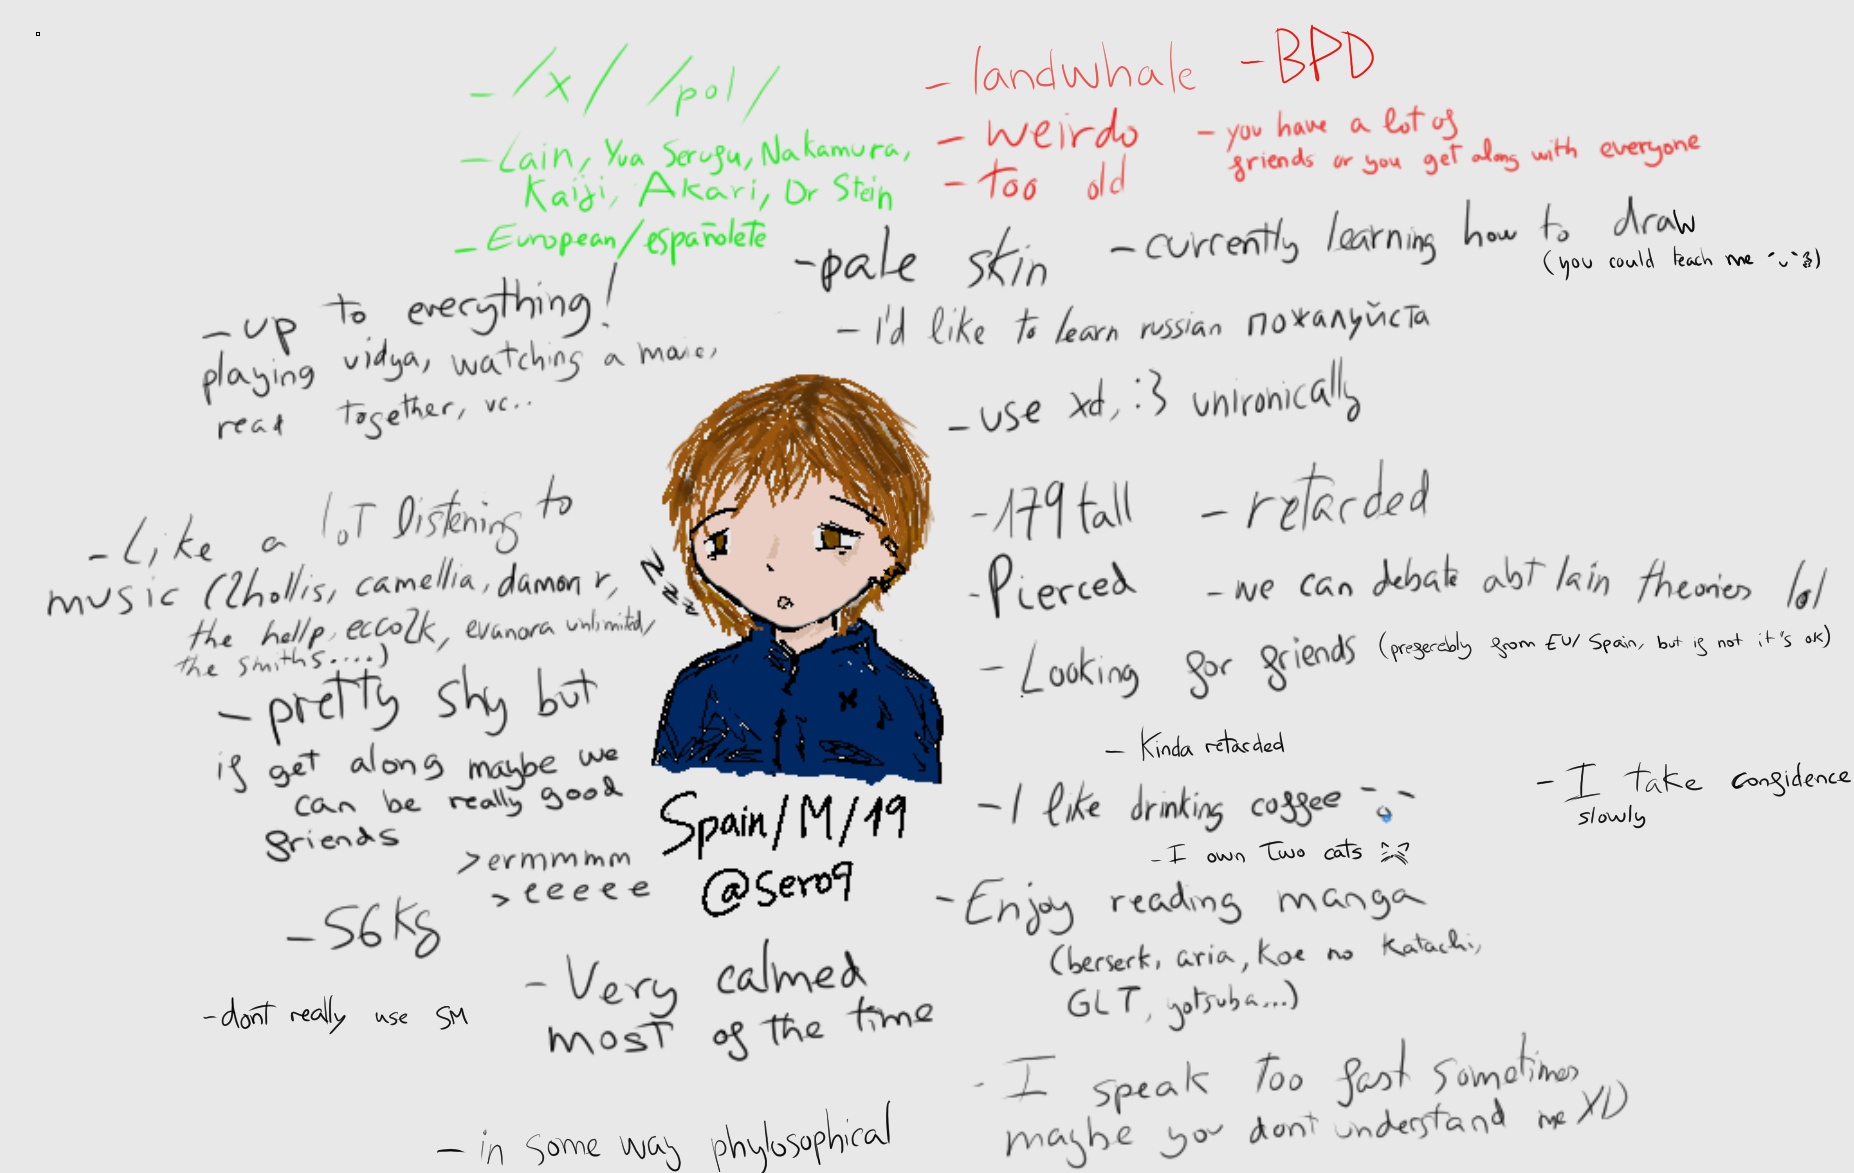 - /x/ /pol/
- Lain, Yua Serugu, Nakamura,
Kaiji, Akari, Dr Stein
- European/españolete
- landwhale
- BPD
- weirdo
- too old
- you have a lot of
friends or you get along with everyone
- pale skin
- currently learning how to draw
(you could teach me ˊᵕˋ3)
- I'd like to learn russian пожалуйста
- use xd, :3 unironically
- up to everything!
playing vidya, watching a movie,
read together, vc..
- Like a loT listening to
music (2hollis, camellia, damon r,
the hellp, ecco2k, evanora unlimited,
the smiths....)
- pretty shy but
if get along maybe we
can be really good
friends
>ermmmm
>eeeee
- 56Kg
- dont really use SM
Zzzz
Spain/M/19
@sero9
- Very calmed
most of the time
- in some way phylosophical
- 179 tall
- retarded
- Pierced
- we can debate abt lain theories lol
- Looking for friends (preferably from EU/Spain, but if not it's ok)
- Kinda retarded
- I like drinking coffee
- I take confidence
slowly
- I own Two cats
- Enjoy reading manga
(berserk, aria, Koe no Katachi,
GLT, yotsuba...)
- I speak Too fast sometimes
maybe you dont understand me XD